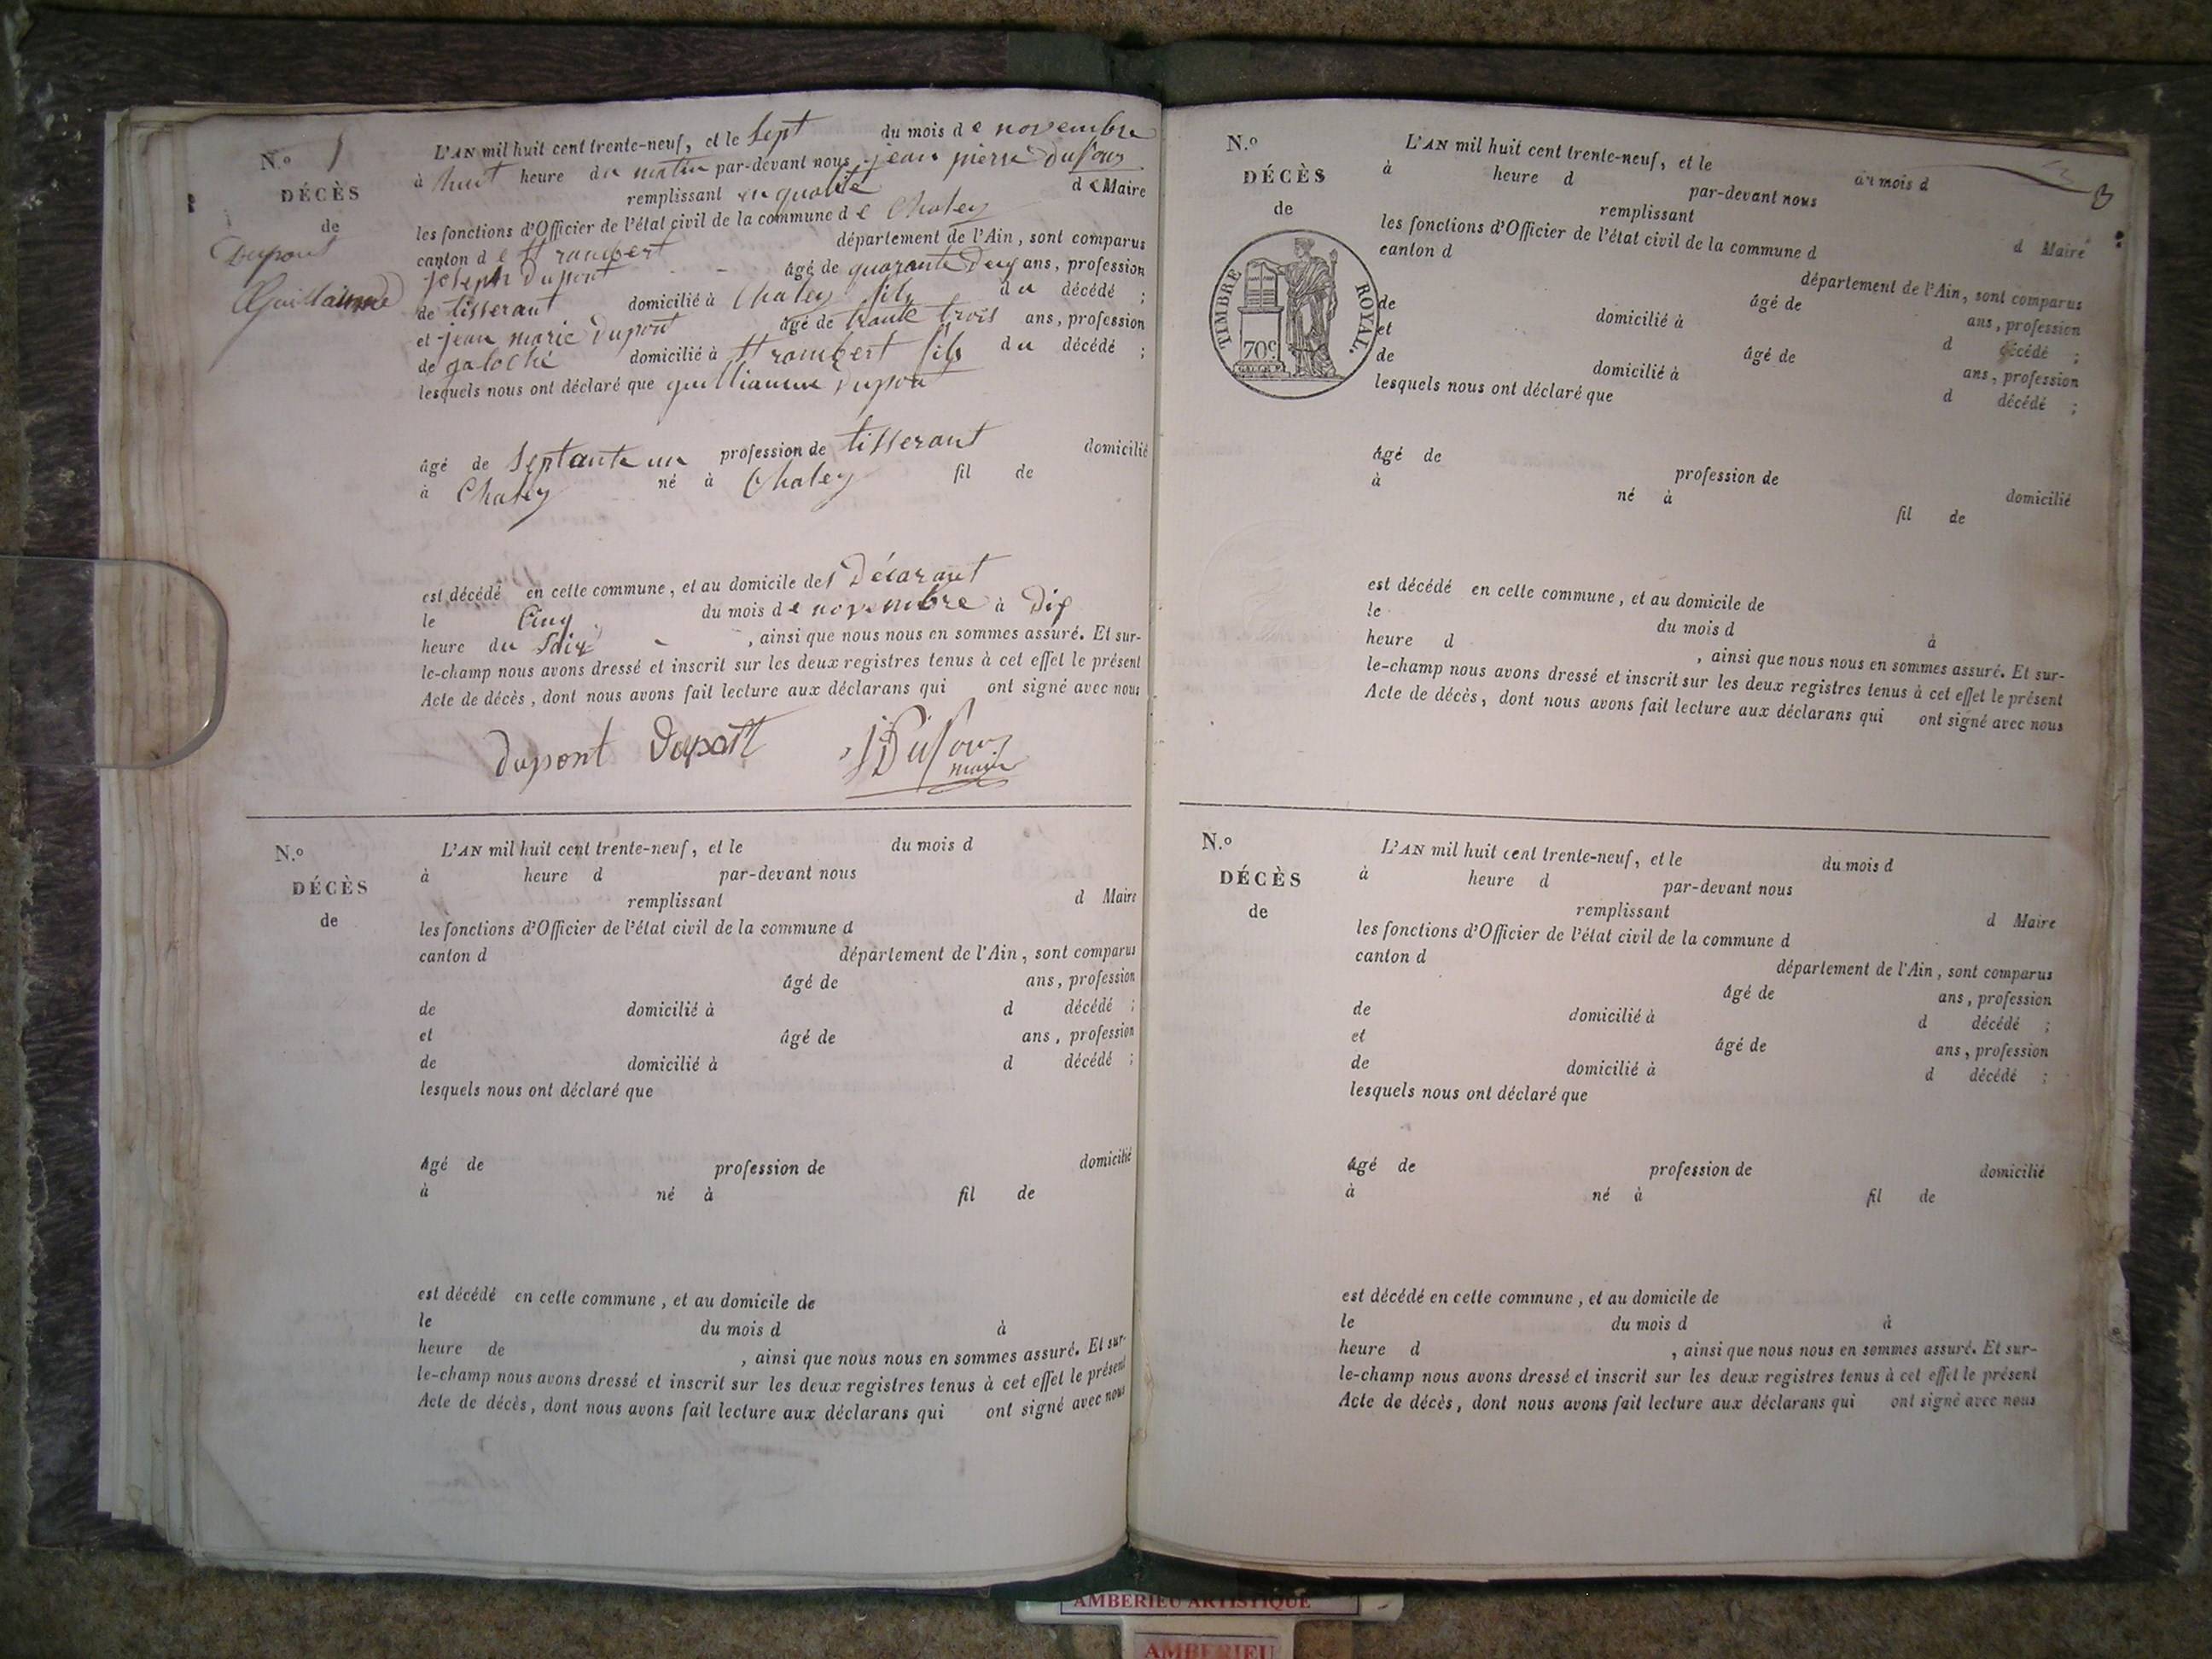 N.o
DÉCÈS
de
Dupont
Guillaume
L'AN mil huit cent trente-neuf, et le sept du mois de novembre
à huit heure du matin par-devant nous jean pierre dufour
remplissant en qualité de Maire
les fonctions d'Officier de l'état civil de la commune de Chaley
canton de St rambert département de l'Ain, sont comparus
joseph dupont âgé de quarante deux ans, profession
de tisserant domicilié à Chaley fils du décédé ;
et jean marie dupont âgé de trante trois ans, profession
de galoché domicilié à St rambert fils du décédé ;
lesquels nous ont déclaré que guilliaume dupont
âgé de septante un profession de tisserant domicilié
à Chaley né à Chaley fil de
est décédé en cette commune, et au domicile des Décarant
le Cinq du mois de novembre à Dix
heure du Soir , ainsi que nous nous en sommes assuré. Et sur-
le-champ nous avons dressé et inscrit sur les deux registres tenus à cet effet le présent
Acte de décès, dont nous avons fait lecture aux déclarans qui ont signé avec nous
dupont Dupont Dufour
maire
N.o
DÉCÈS
de
L'AN mil huit cent trente-neuf, et le du mois d
à heure d par-devant nous
remplissant d Maire
les fonctions d'Officier de l'état civil de la commune d
canton d département de l'Ain, sont comparus
âgé de ans, profession
de domicilié à d décédé ;
et âgé de ans, profession
de domicilié à d décédé ;
lesquels nous ont déclaré que
âgé de profession de domicilié
à né à fil de
est décédé en cette commune, et au domicile de
le du mois d à
heure de , ainsi que nous nous en sommes assuré. Et sur-
le-champ nous avons dressé et inscrit sur les deux registres tenus à cet effet le présent
Acte de décès, dont nous avons fait lecture aux déclarans qui ont signé avec nous
3
N.o
DÉCÈS
de
TIMBRE ROYAL.
70c
L'AN mil huit cent trente-neuf, et le du mois d
à heure d par-devant nous
remplissant d Maire
les fonctions d'Officier de l'état civil de la commune d
canton d département de l'Ain, sont comparus
âgé de ans, profession
de domicilié à d décédé ;
et âgé de ans, profession
de domicilié à d décédé ;
lesquels nous ont déclaré que
âgé de profession de domicilié
à né à fil de
est décédé en cette commune, et au domicile de
le du mois d à
heure d , ainsi que nous nous en sommes assuré. Et sur-
le-champ nous avons dressé et inscrit sur les deux registres tenus à cet effet le présent
Acte de décès, dont nous avons fait lecture aux déclarans qui ont signé avec nous
N.o
DÉCÈS
de
L'AN mil huit cent trente-neuf, et le du mois d
à heure d par-devant nous
remplissant d Maire
les fonctions d'Officier de l'état civil de la commune d
canton d département de l'Ain, sont comparus
âgé de ans, profession
de domicilié à d décédé ;
et âgé de ans, profession
de domicilié à d décédé ;
lesquels nous ont déclaré que
âgé de profession de domicilié
à né à fil de
est décédé en cette commune, et au domicile de
le du mois d à
heure d , ainsi que nous nous en sommes assuré. Et sur-
le-champ nous avons dressé et inscrit sur les deux registres tenus à cet effet le présent
Acte de décès, dont nous avons fait lecture aux déclarans qui ont signé avec nous
AMBERIEU ARTISTIQUE
AMBERIEU